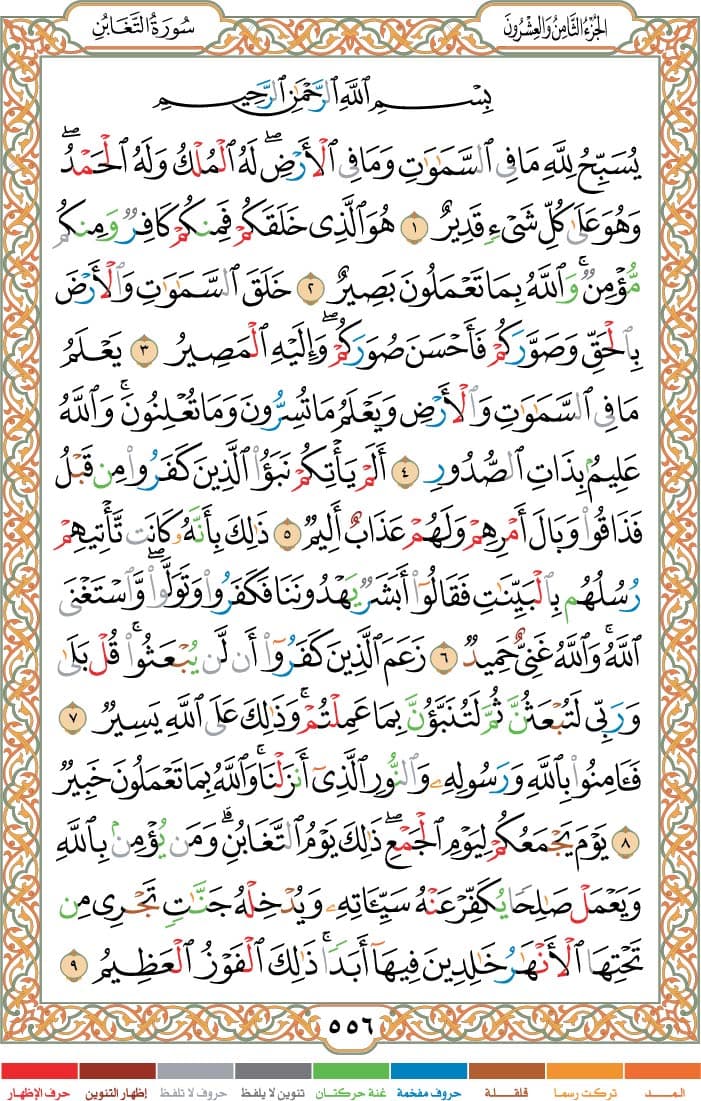 الجزء الثامن والعشرون
سورة التغابن
بِسْمِ ٱللَّهِ ٱلرَّحْمَٰنِ ٱلرَّحِيمِ
يُسَبِّحُ لِلَّهِ مَا فِى ٱلسَّمَٰوَٰتِ وَمَا فِى ٱلْأَرْضِ ۖ لَهُ ٱلْمُلْكُ وَلَهُ ٱلْحَمْدُ ۖ
وَهُوَ عَلَىٰ كُلِّ شَىْءٍ قَدِيرٌ ١ هُوَ ٱلَّذِى خَلَقَكُمْ فَمِنكُمْ كَافِرٌ وَمِنكُم
مُّؤْمِنٌ ۚ وَٱللَّهُ بِمَا تَعْمَلُونَ بَصِيرٌ ٢ خَلَقَ ٱلسَّمَٰوَٰتِ وَٱلْأَرْضَ
بِٱلْحَقِّ وَصَوَّرَكُمْ فَأَحْسَنَ صُوَرَكُمْ ۖ وَإِلَيْهِ ٱلْمَصِيرُ ٣ يَعْلَمُ
مَا فِى ٱلسَّمَٰوَٰتِ وَٱلْأَرْضِ وَيَعْلَمُ مَا تُسِرُّونَ وَمَا تُعْلِنُونَ ۚ وَٱللَّهُ
عَلِيمٌۢ بِذَاتِ ٱلصُّدُورِ ٤ أَلَمْ يَأْتِكُمْ نَبَؤُا۟ ٱلَّذِينَ كَفَرُوا۟ مِن قَبْلُ
فَذَاقُوا۟ وَبَالَ أَمْرِهِمْ وَلَهُمْ عَذَابٌ أَلِيمٌ ٥ ذَٰلِكَ بِأَنَّهُۥ كَانَت تَّأْتِيهِمْ
رُسُلُهُم بِٱلْبَيِّنَٰتِ فَقَالُوٓا۟ أَبَشَرٌ يَهْدُونَنَا فَكَفَرُوا۟ وَتَوَلَّوا۟ ۚ وَّٱسْتَغْنَى
ٱللَّهُ ۚ وَٱللَّهُ غَنِىٌّ حَمِيدٌ ٦ زَعَمَ ٱلَّذِينَ كَفَرُوٓا۟ أَن لَّن يُبْعَثُوا۟ ۚ قُلْ بَلَىٰ
وَرَبِّى لَتُبْعَثُنَّ ثُمَّ لَتُنَبَّؤُنَّ بِمَا عَمِلْتُمْ ۚ وَذَٰلِكَ عَلَى ٱللَّهِ يَسِيرٌ ٧
فَـَٔامِنُوا۟ بِٱللَّهِ وَرَسُولِهِۦ وَٱلنُّورِ ٱلَّذِىٓ أَنزَلْنَا ۚ وَٱللَّهُ بِمَا تَعْمَلُونَ خَبِيرٌ
٨ يَوْمَ يَجْمَعُكُمْ لِيَوْمِ ٱلْجَمْعِ ۖ ذَٰلِكَ يَوْمُ ٱلتَّغَابُنِ ۗ وَمَن يُؤْمِنۢ بِٱللَّهِ
وَيَعْمَلْ صَٰلِحًا يُكَفِّرْ عَنْهُ سَيِّـَٔاتِهِۦ وَيُدْخِلْهُ جَنَّٰتٍ تَجْرِى مِن
تَحْتِهَا ٱلْأَنْهَٰرُ خَٰلِدِينَ فِيهَآ أَبَدًا ۚ ذَٰلِكَ ٱلْفَوْزُ ٱلْعَظِيمُ ٩
٥٥٦
المــــد تركت رسما قلقلة حروف مفخمة غنة حركتان تنوين لا يلفظ حروف لا تلفظ إظهار التنوين حرف الإظهار